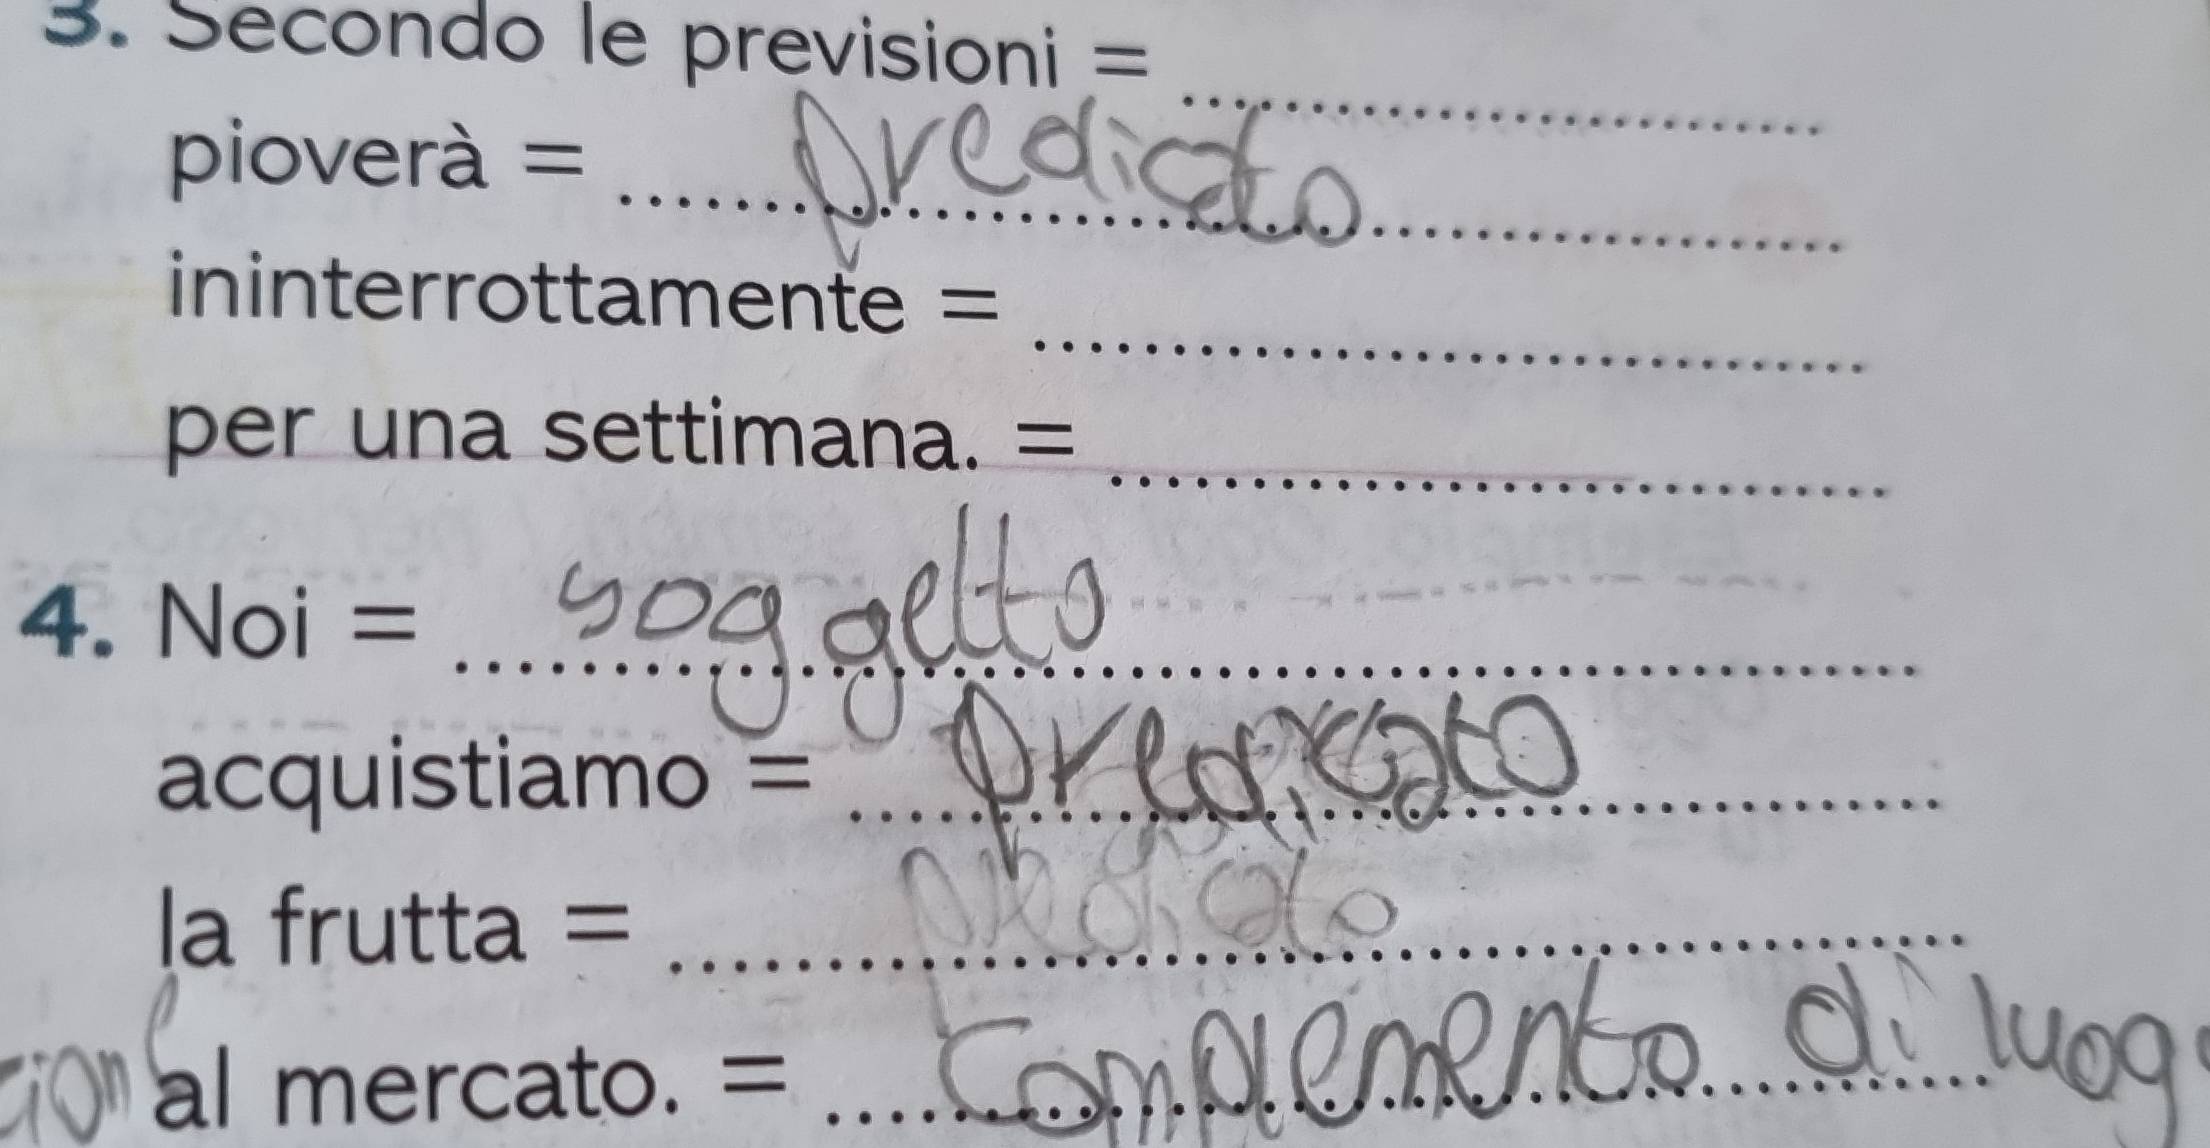 3. Secondo le previsioni = ..........
pioverà = predicato
ininterrottamente = ..........
per una settimana. = ..........
4. Noi = soggetto
acquistiamo = predicato
la frutta = ..........
al mercato. = complemento di luogo